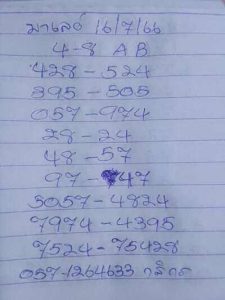 มาเลย์ 16/7/66
4-8 A B
428-524
395-505
057-974
28-24
48-57
97-47
3057-4824
7974-4395
7524-75428
057-1264633